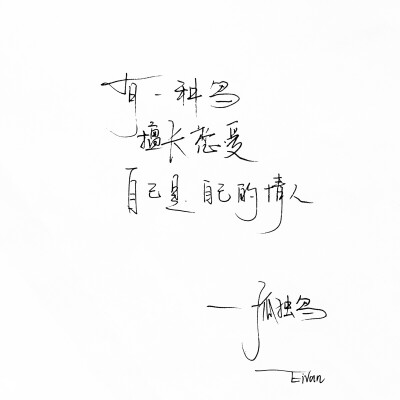 有一种鸟
擅长恋爱
自己是自己的情人
——孤独鸟
Eivan